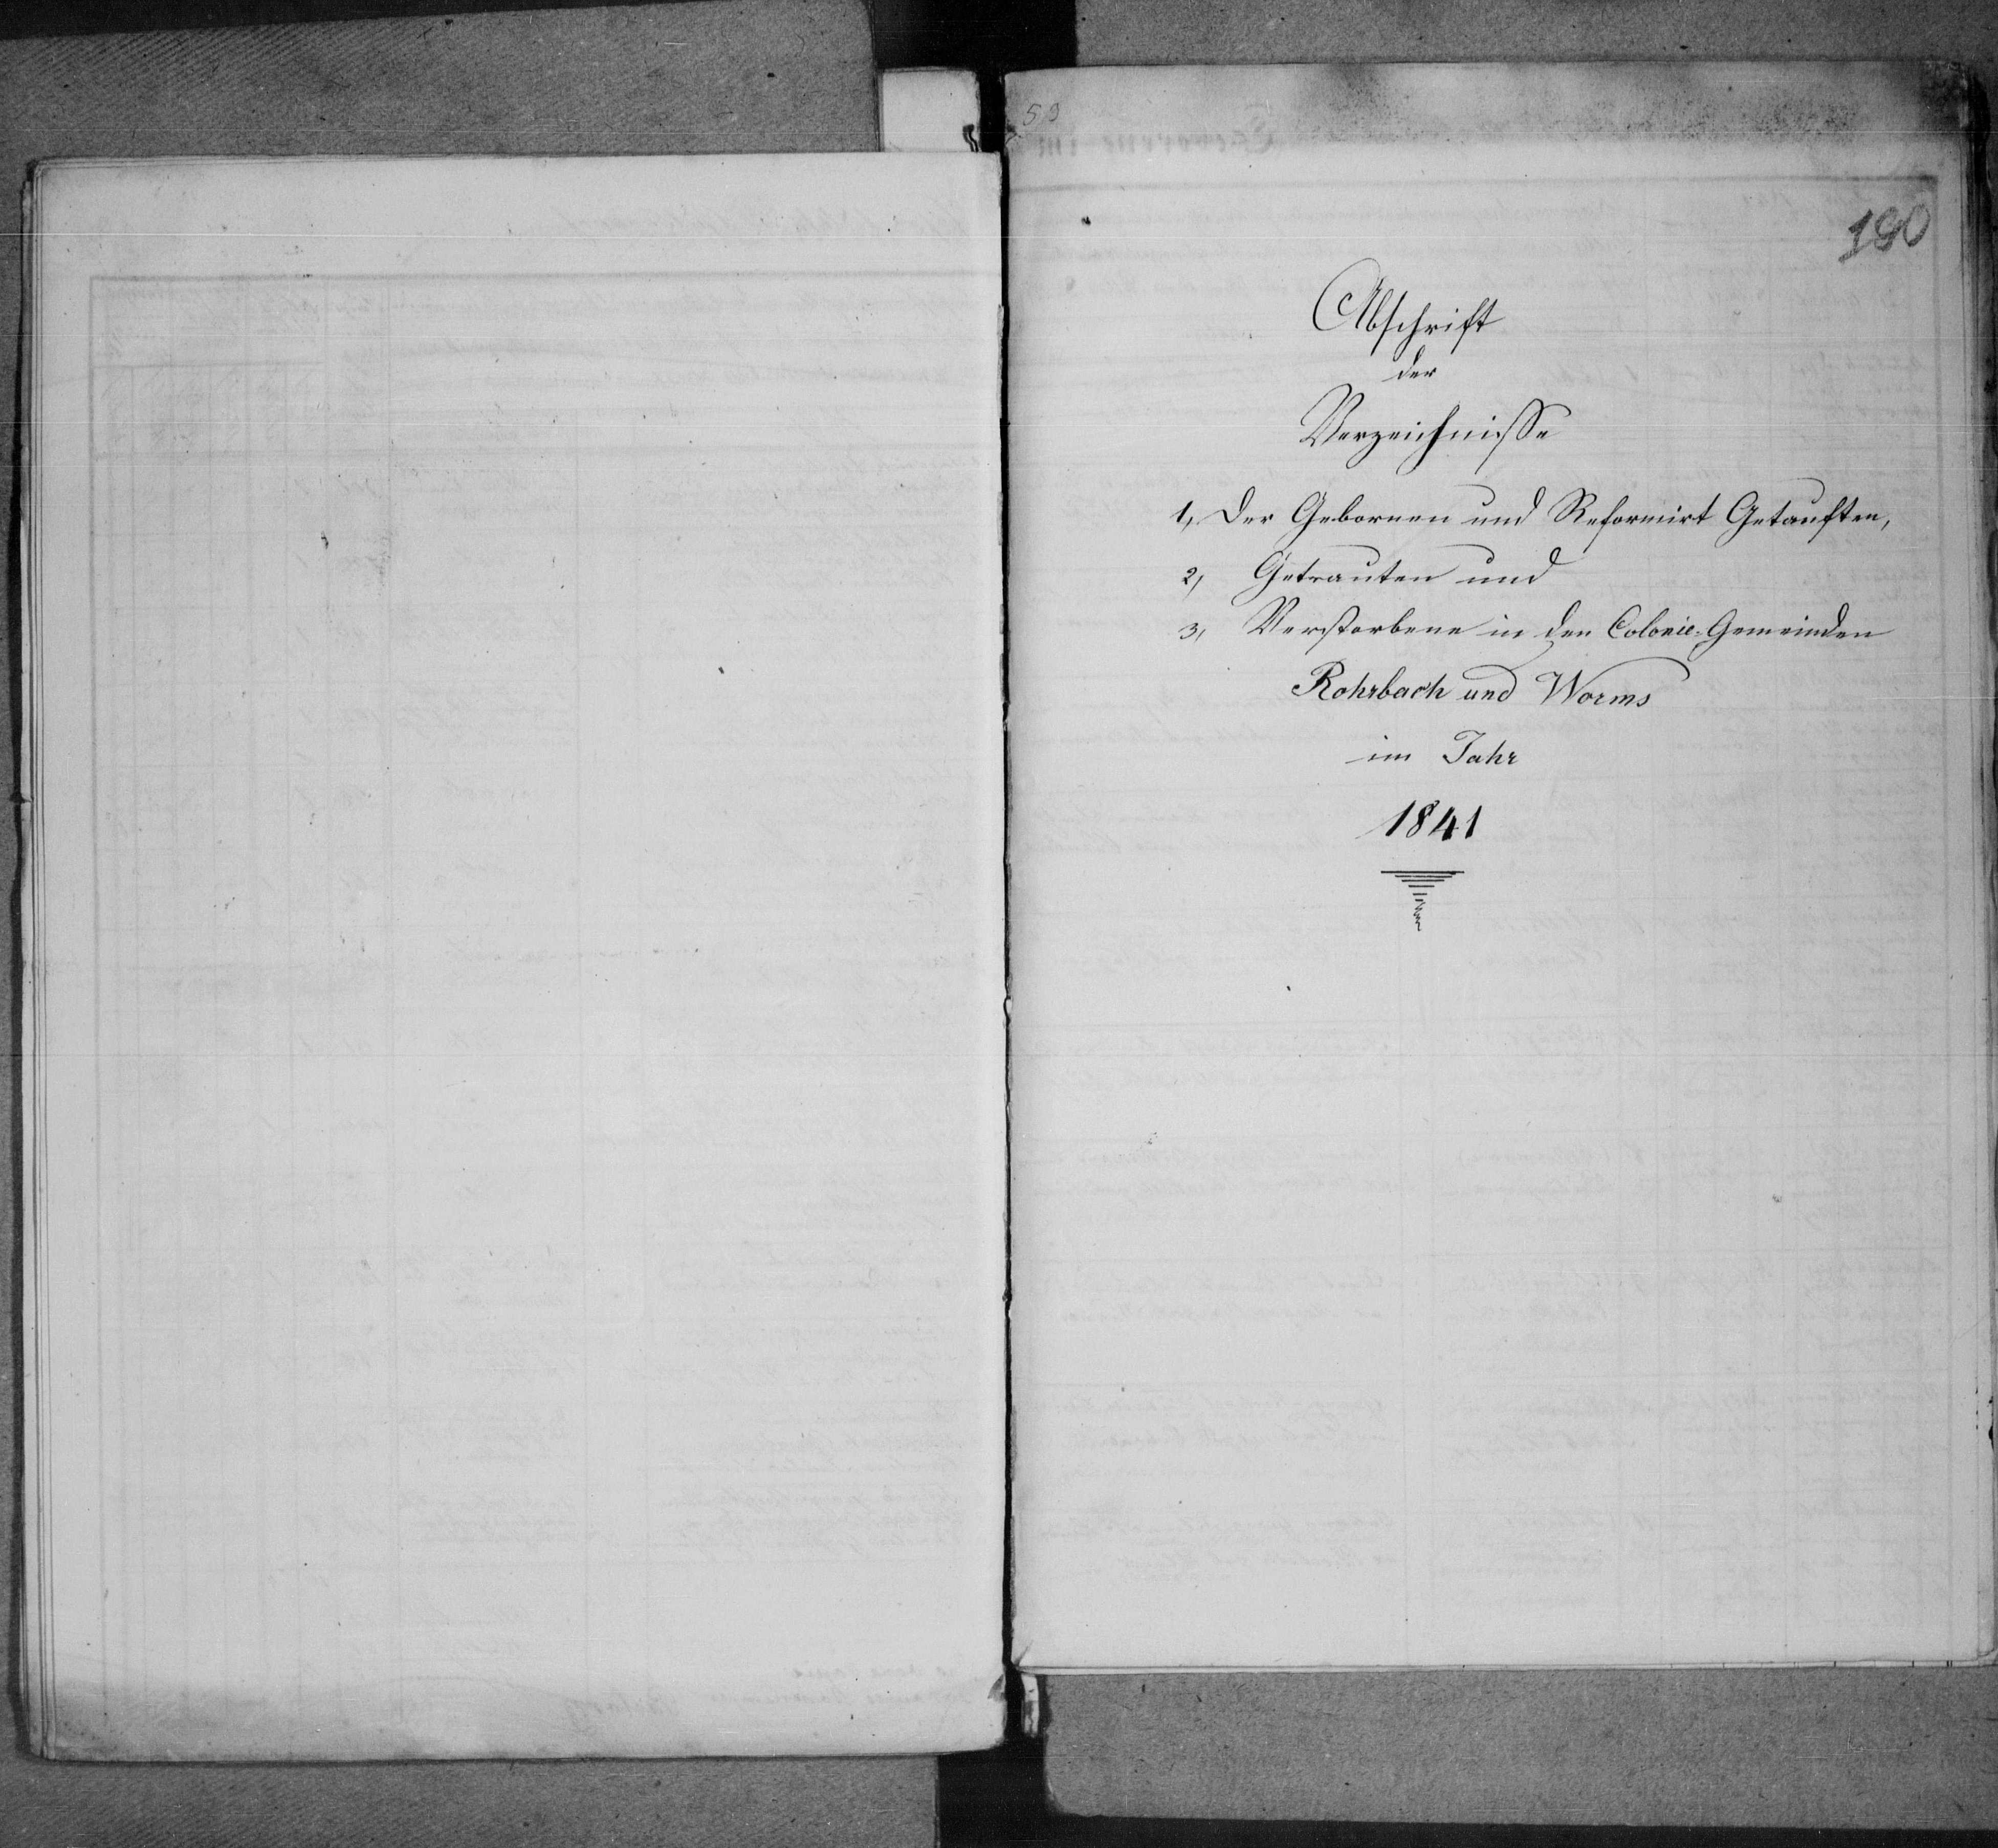 59
190
Abschrift
der
Verzeichnisse
1, Der Gebornen und Reformirt Getauften,
2, Getrauten und
3, Verstorbene in den Colonie-Gemeinden
Rohrbach und Worms
im Jahr
1841